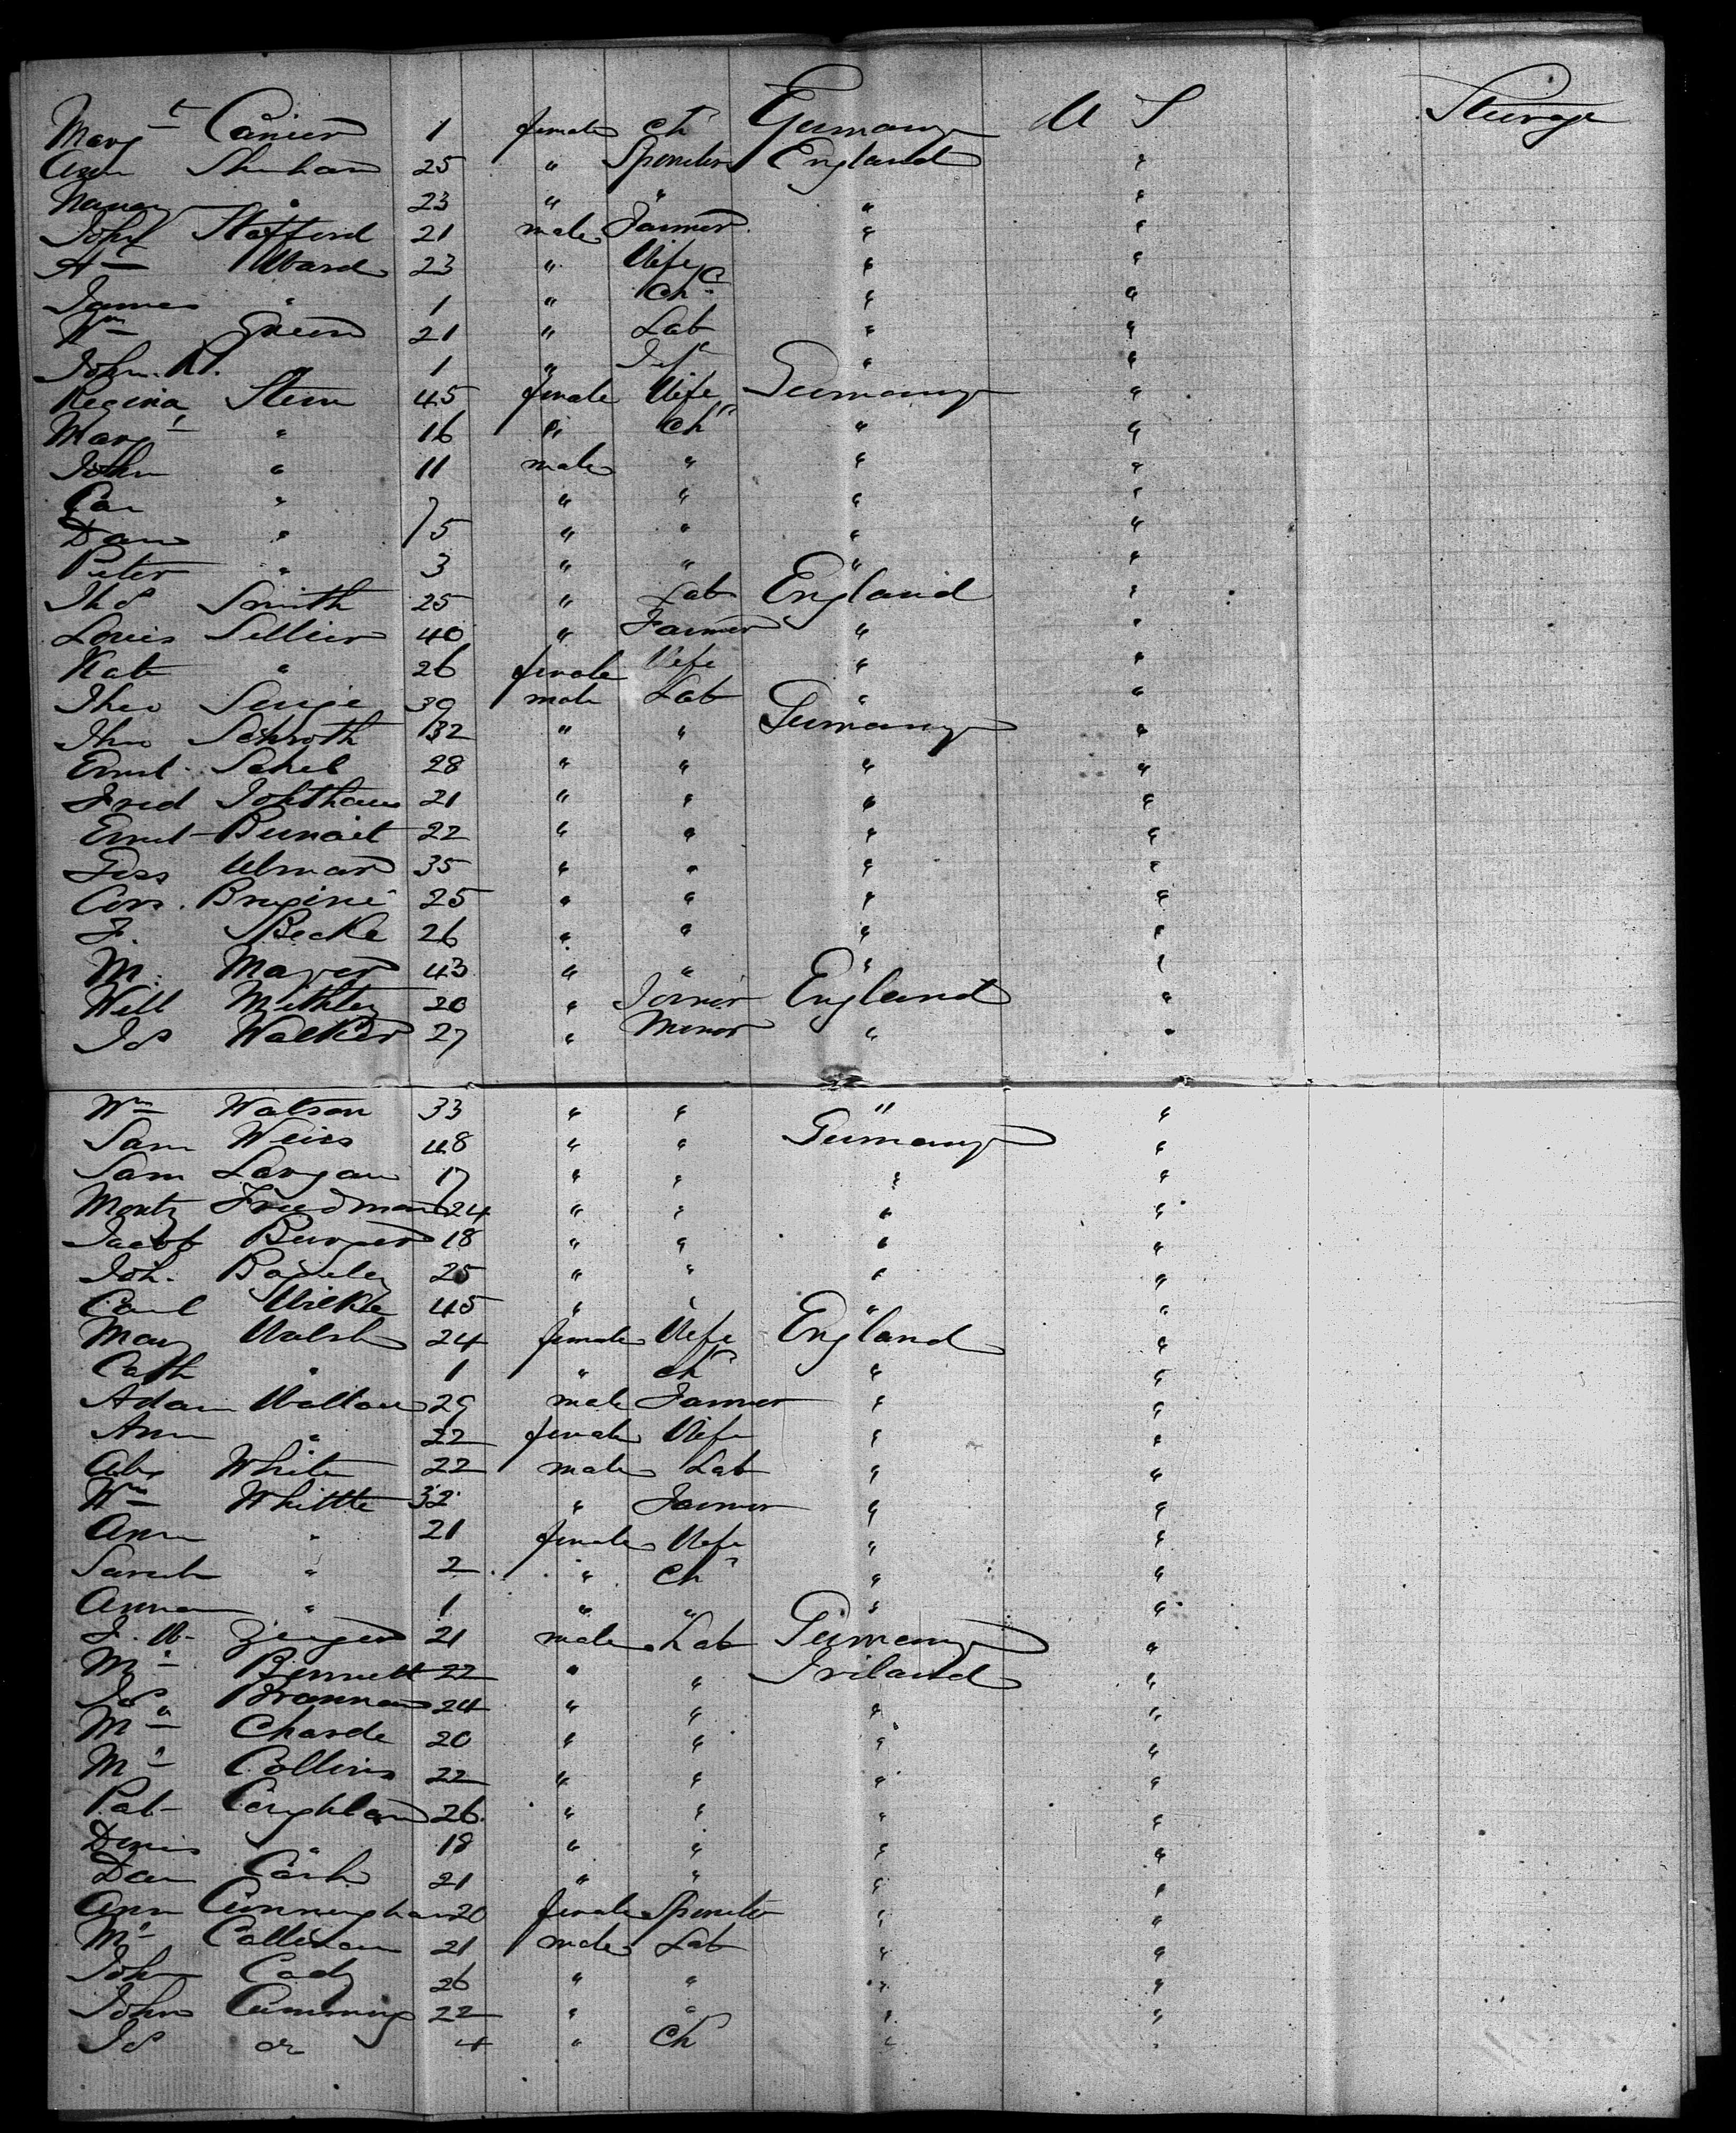 Marg t Canier 1 female ch Germany U S Steerage
Ann Shenhan 25 " Spinster England "
Nancy " 23 " " " "
John Stafford 21 male Farmer " "
Ward 23 " Wife " "
James " 1 " Ch " "
Wm Green 21 " Lab " "
John. W. 1 " Inf " "
Regina Stern 45 female Wife Germany "
Marg t " 16 " Ch " "
John " 11 male " " "
Car " 7 " " " "
Dan " 5 " " " "
Peter " 3 " " " "
Ths Smith 25 " Lab England "
Louis Sellier 40 " Farmer " "
Kate " 26 female Wife " "
Theo 39 male Lab " "
Schroth 32 " " Germany "
Ernst Schel 28 " " " "
Fred 21 " " " "
Ernst Bunait 22 " " " "
Ulmar 35 " " " "
25 " " " "
F. Becke 26 " " " "
M. Mayer 43 " " " "
Will Methley 20 " Joiner England "
Js Walker 27 " Miner " "
Wm Watson 33 " " " "
Sam Weiss 48 " " Germany "
Sam Largan 17 " " " "
Moritz Friedman 24 " " " "
Jacob Burger 18 " " " "
Joh. 25 " " " "
Carl Wilkte 45 " " " "
Mary Walsh 24 female Wife England "
Cath " 1 " Ch " "
Adam Wallace 29 male Farmer " "
Ann " 22 female Wife " "
Alex White 22 male Lab " "
Wm Whittle 32 " Farmer " "
Ann " 21 female Wife " "
Sarah " 2 " Ch " "
Anna " 1 " " " "
J. W. Zeiger 21 male Lab Germany "
Ml Bennett 22 " " Iriland "
Js Brannan 24 " " " "
Ml Charde 20 " " " "
Ml Collins 22 " " " "
Pat Coughlan 26 " " " "
Denis " 18 " " " "
Dan Cash 21 " " " "
Ann Cunningham 20 female Spinster " "
Ml Callinan 21 male Lab " "
John Cady 26 " " " "
John Cumming 22 " " " "
Js do 4 " Ch " "